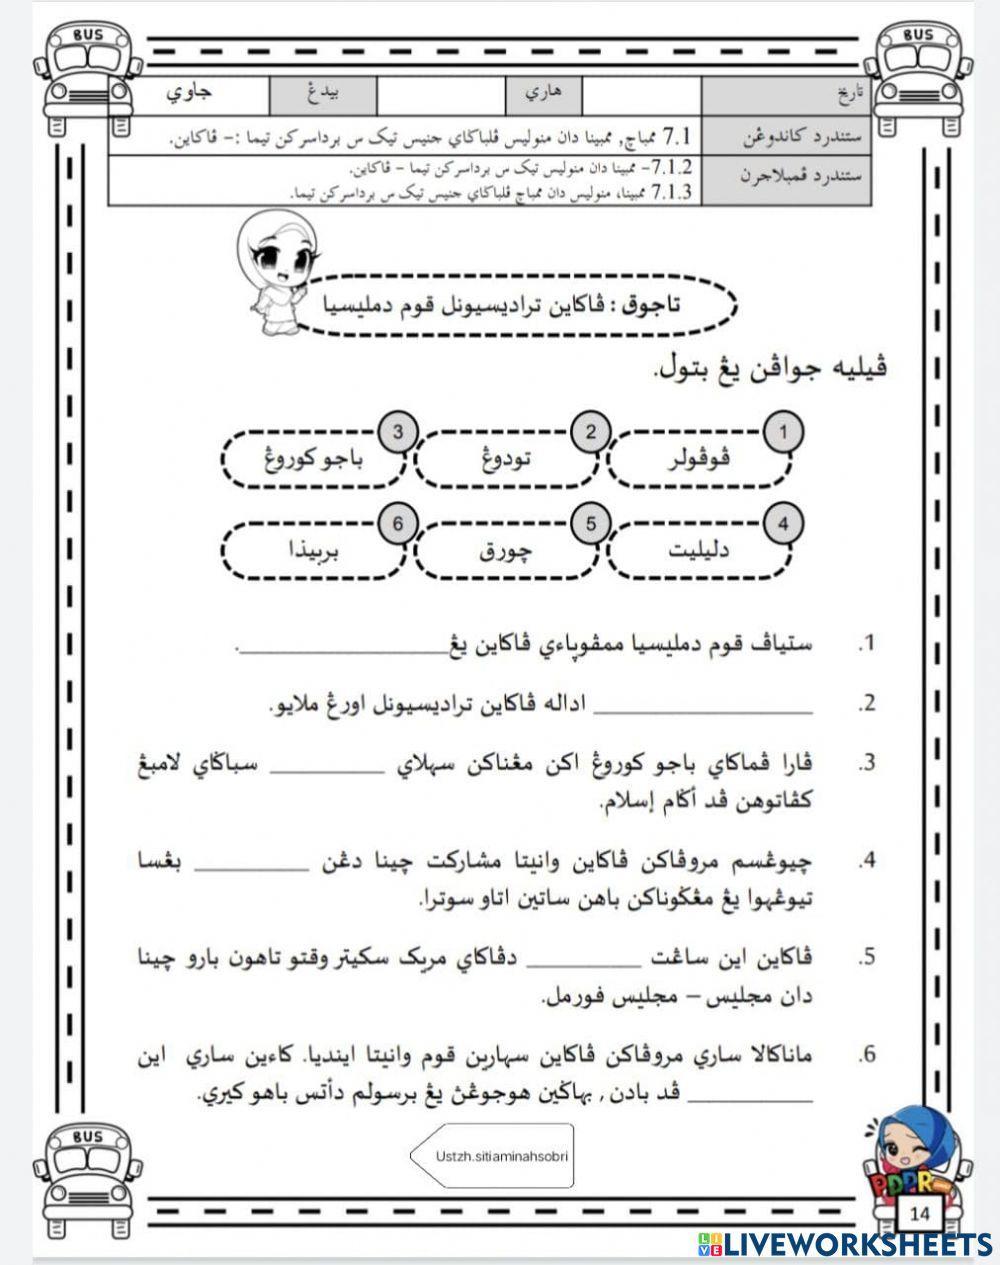 BUS
BUS
تاريخ هاري بيدڠ جاوي
ستندرد كاندوڠن 7.1 ممباچ, ممبينا دان منوليس ڤلباݢاي جنيس تيک س برداسركن تيما :- ڤاكاين.
ستندرد ڤمبلاجرن 7.1.2- ممبينا دان منوليس تيک س برداسركن تيما - ڤاكاين.
7.1.3 ممبينا، منوليس دان ممباچ ڤلباݢاي جنيس تيک س برداسركن تيما.
تاجوق : ڤاكاين تراديسيونل قوم دمليسيا
ڤيليه جواڤن يڠ بتول.
1 ڤوڤولر
2 تودوڠ
3 باجو كوروڠ
4 دليليت
5 چورق
6 بربيذا
1. ستياڤ قوم دمليسيا ممڤوڽاءي ڤاكاين يڠ____________.
2. ____________ اداله ڤاكاين تراديسيونل اورڠ ملايو.
3. ڤارا ڤماكاي باجو كوروڠ اكن مڠناكن سهلاي ________ سباݢاي لامبڠ
كڤاتوهن ڤد أݢام إسلام.
4. چيوڠسم مروڤاكن ڤاكاين وانيتا مشاركت چينا دڠن ________ بڠسا
تيوڠهوا يڠ مڠݢوناكن باهن ساتين اتاو سوترا.
5. ڤاكاين اين ساڠت ________ دڤاكاي مريک سكيتر وقتو تاهون بارو چينا
دان مجليس – مجليس فورمل.
6. ماناكالا ساري مروڤاكن ڤاكاين سهارين قوم وانيتا اينديا. كاءين ساري اين
________ ڤد بادن , بهاݢين هوجوڠڽ يڠ برسولم دأتس باهو كيري.
Ustzh.sitiaminahsobri
BUS
PDPR
14
LIVEWORKSHEETS